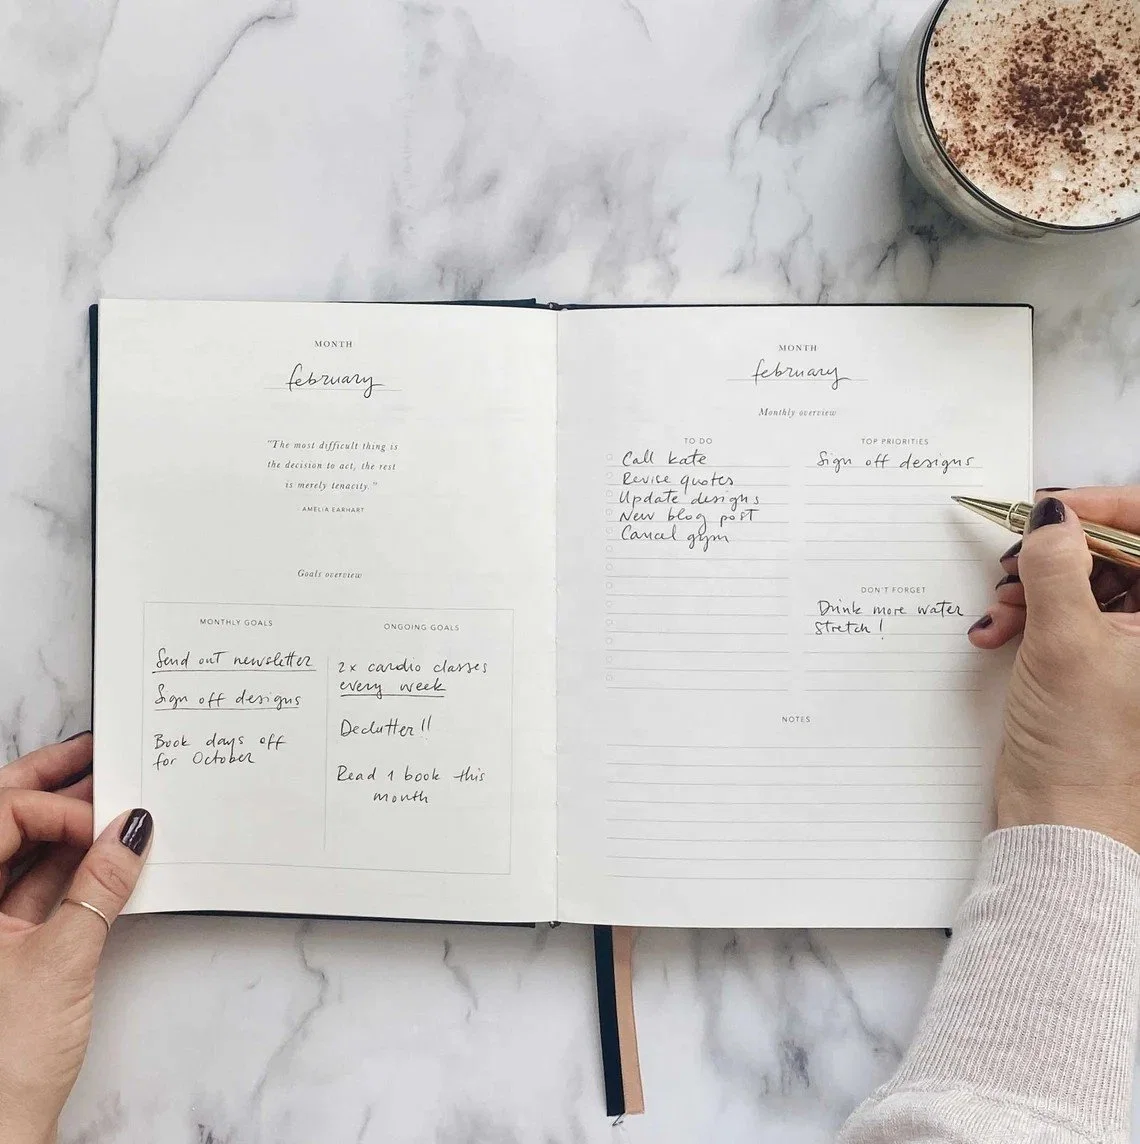 MONTH
february
"The most difficult thing is
the decision to act, the rest
is merely tenacity."
AMELIA EARHART
Goals overview
MONTHLY GOALS
Send out newsletter
Sign off designs
Book days off
for October
ONGOING GOALS
2x cardio classes
every week
Declutter!!
Read 1 book this
month
MONTH
february
Monthly overview
TO DO
Call kate
Revise quotes
Update designs
New blog post
Cancel gym
TOP PRIORITIES
Sign off designs
DON'T FORGET
Drink more water
Stretch!
NOTES